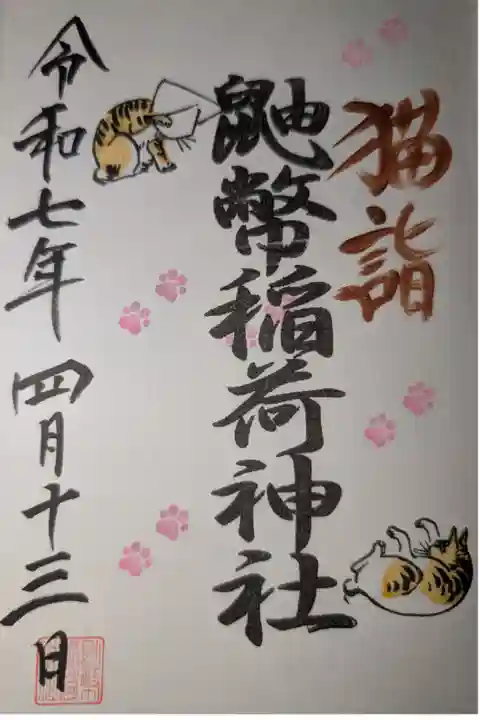 猫詣
鼬幣稲荷神社
令和七年四月十三日